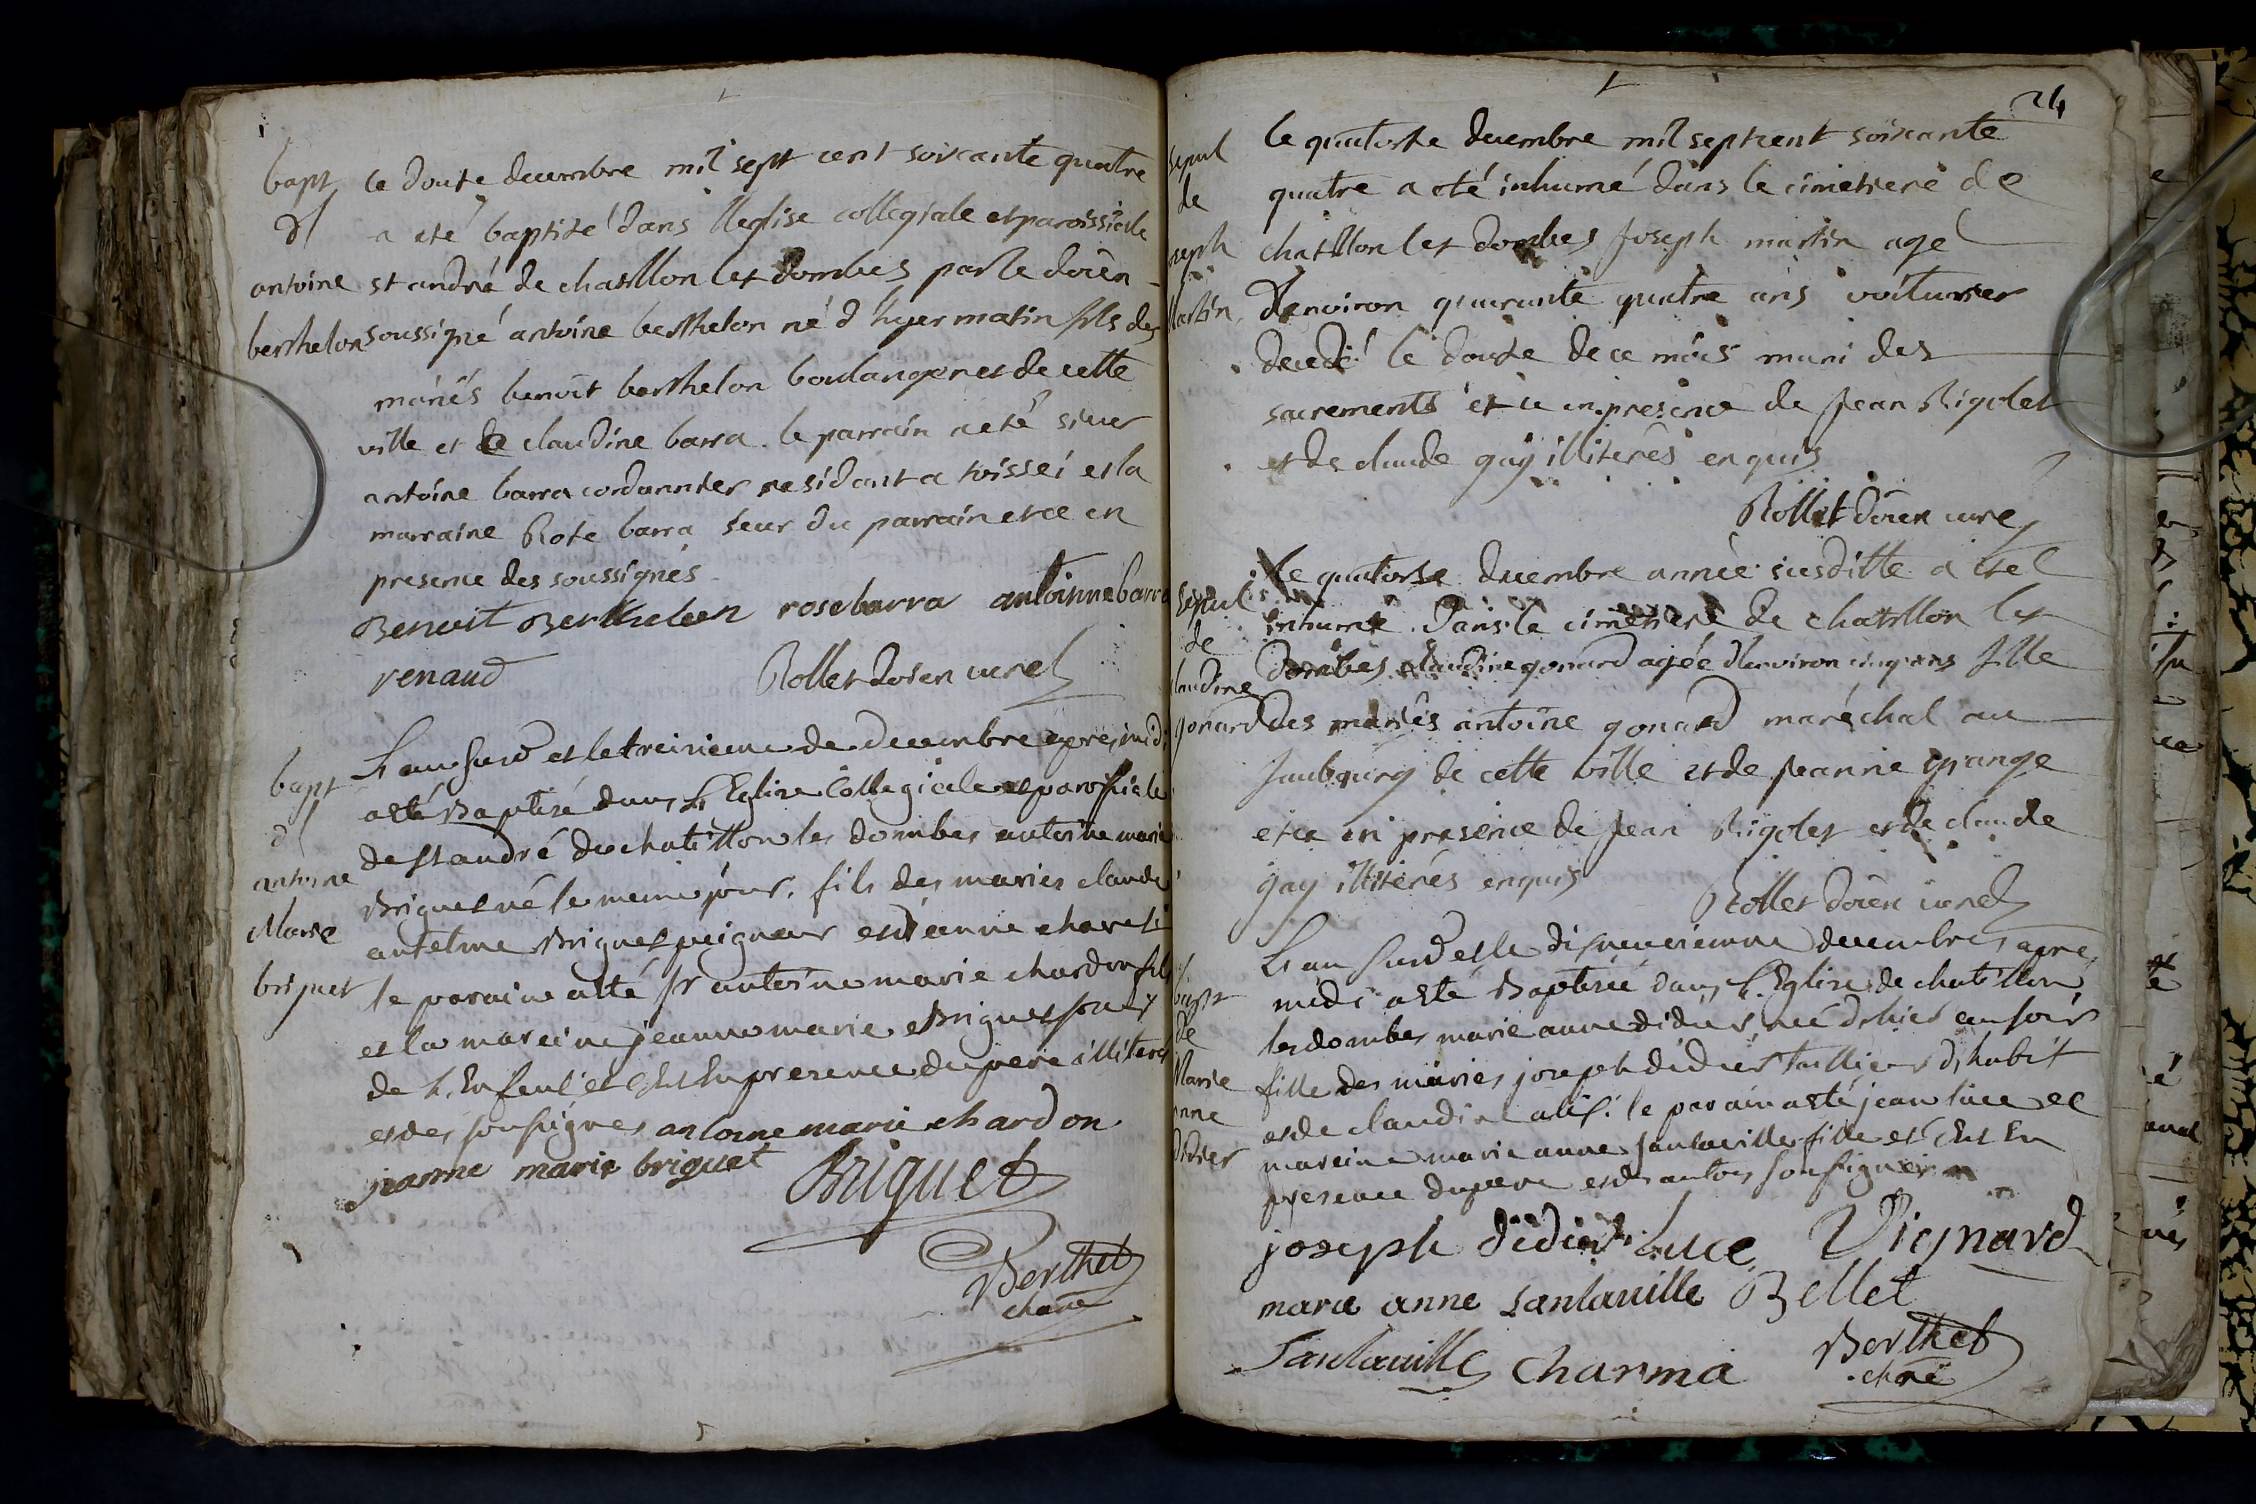 bapt
d'
antoine
berthelon
le douze decembre mil sept cent soixante quatre
a eté baptizé dans l'eglise collegiale et paroissiale
st andré de chatillon lez dombes par le doïen
soussigné antoine berthelon né d'hyer matin fils des
mariés benoit berthelon boulanger et de cette
ville et de claudine barra. le parrain a eté sieur
antoine barra cordonnier residant a toissei et la
marraine Roze barra seur du parrain et ce en
presence des soussignés
Benoit Berthelon rose barra antoinne barra
renaud Rollet doien curé
bapt
d'
antoine
Marie
briguet
L'an susd et le treizieme de decembre apres midi
a eté Baptisé dans L'Eglise Collegiale et paroissiale
de St andré de chatillon les dombes antoine marie
Briguet né le meme jour. fils des maries claude
antelme Briguet peigneur et jeanne charvet
le parain a eté sr antoine marie chardon fils
et la mareine jeanne marie Briguet soeur
de L'Enfent et c'Est En presence du pere illiteré
et des soussignes antoine marie chardon
jeanne marie briguet Briguet
Berthet
chane
24
sepul
de
joseph
Martin
le quatorze decembre mil sept cent soixante
quatre a eté inhumé dans le cimetiere de
chatillon lez dombes Joseph martin agé
d'environ quarante quatre ans voiturier
decedé le douze de ce mois muni des
sacrements et ce en presence de Jean Rigolet
et de claude gay illiterés enquis
Rollet doïen curé
sepul
de
claudine
gonard
le quatorze decembre année susditte a eté
inhumée dans le cimetiere de chatillon lez
dombes claudine gonard agée d'environ cinq ans fille
des mariés antoine gonard maréchal au
faubourg de cette ville et de Jeanne grange
et ce en presence de Jean Rigolet et de claude
gay illiterés enquis
Rollet doïen curé
bapt
de
Marie
anne
Didier
L'an susd et le dixneuvieme decembre apres
midi a eté Baptisée dans L'Eglise de chatillon
les dombes marie anne didier née d'hier au soir
fille des maries joseph didier tallieur d'habit
et de claudine alix. le parain a eté jean luce et
mareine marie anne santaville fille et c'Est En
presence du pere et des autres soussignes
joseph didier luce Vignard
marie anne santaville Bellet
Santaville charma Berthet
chane